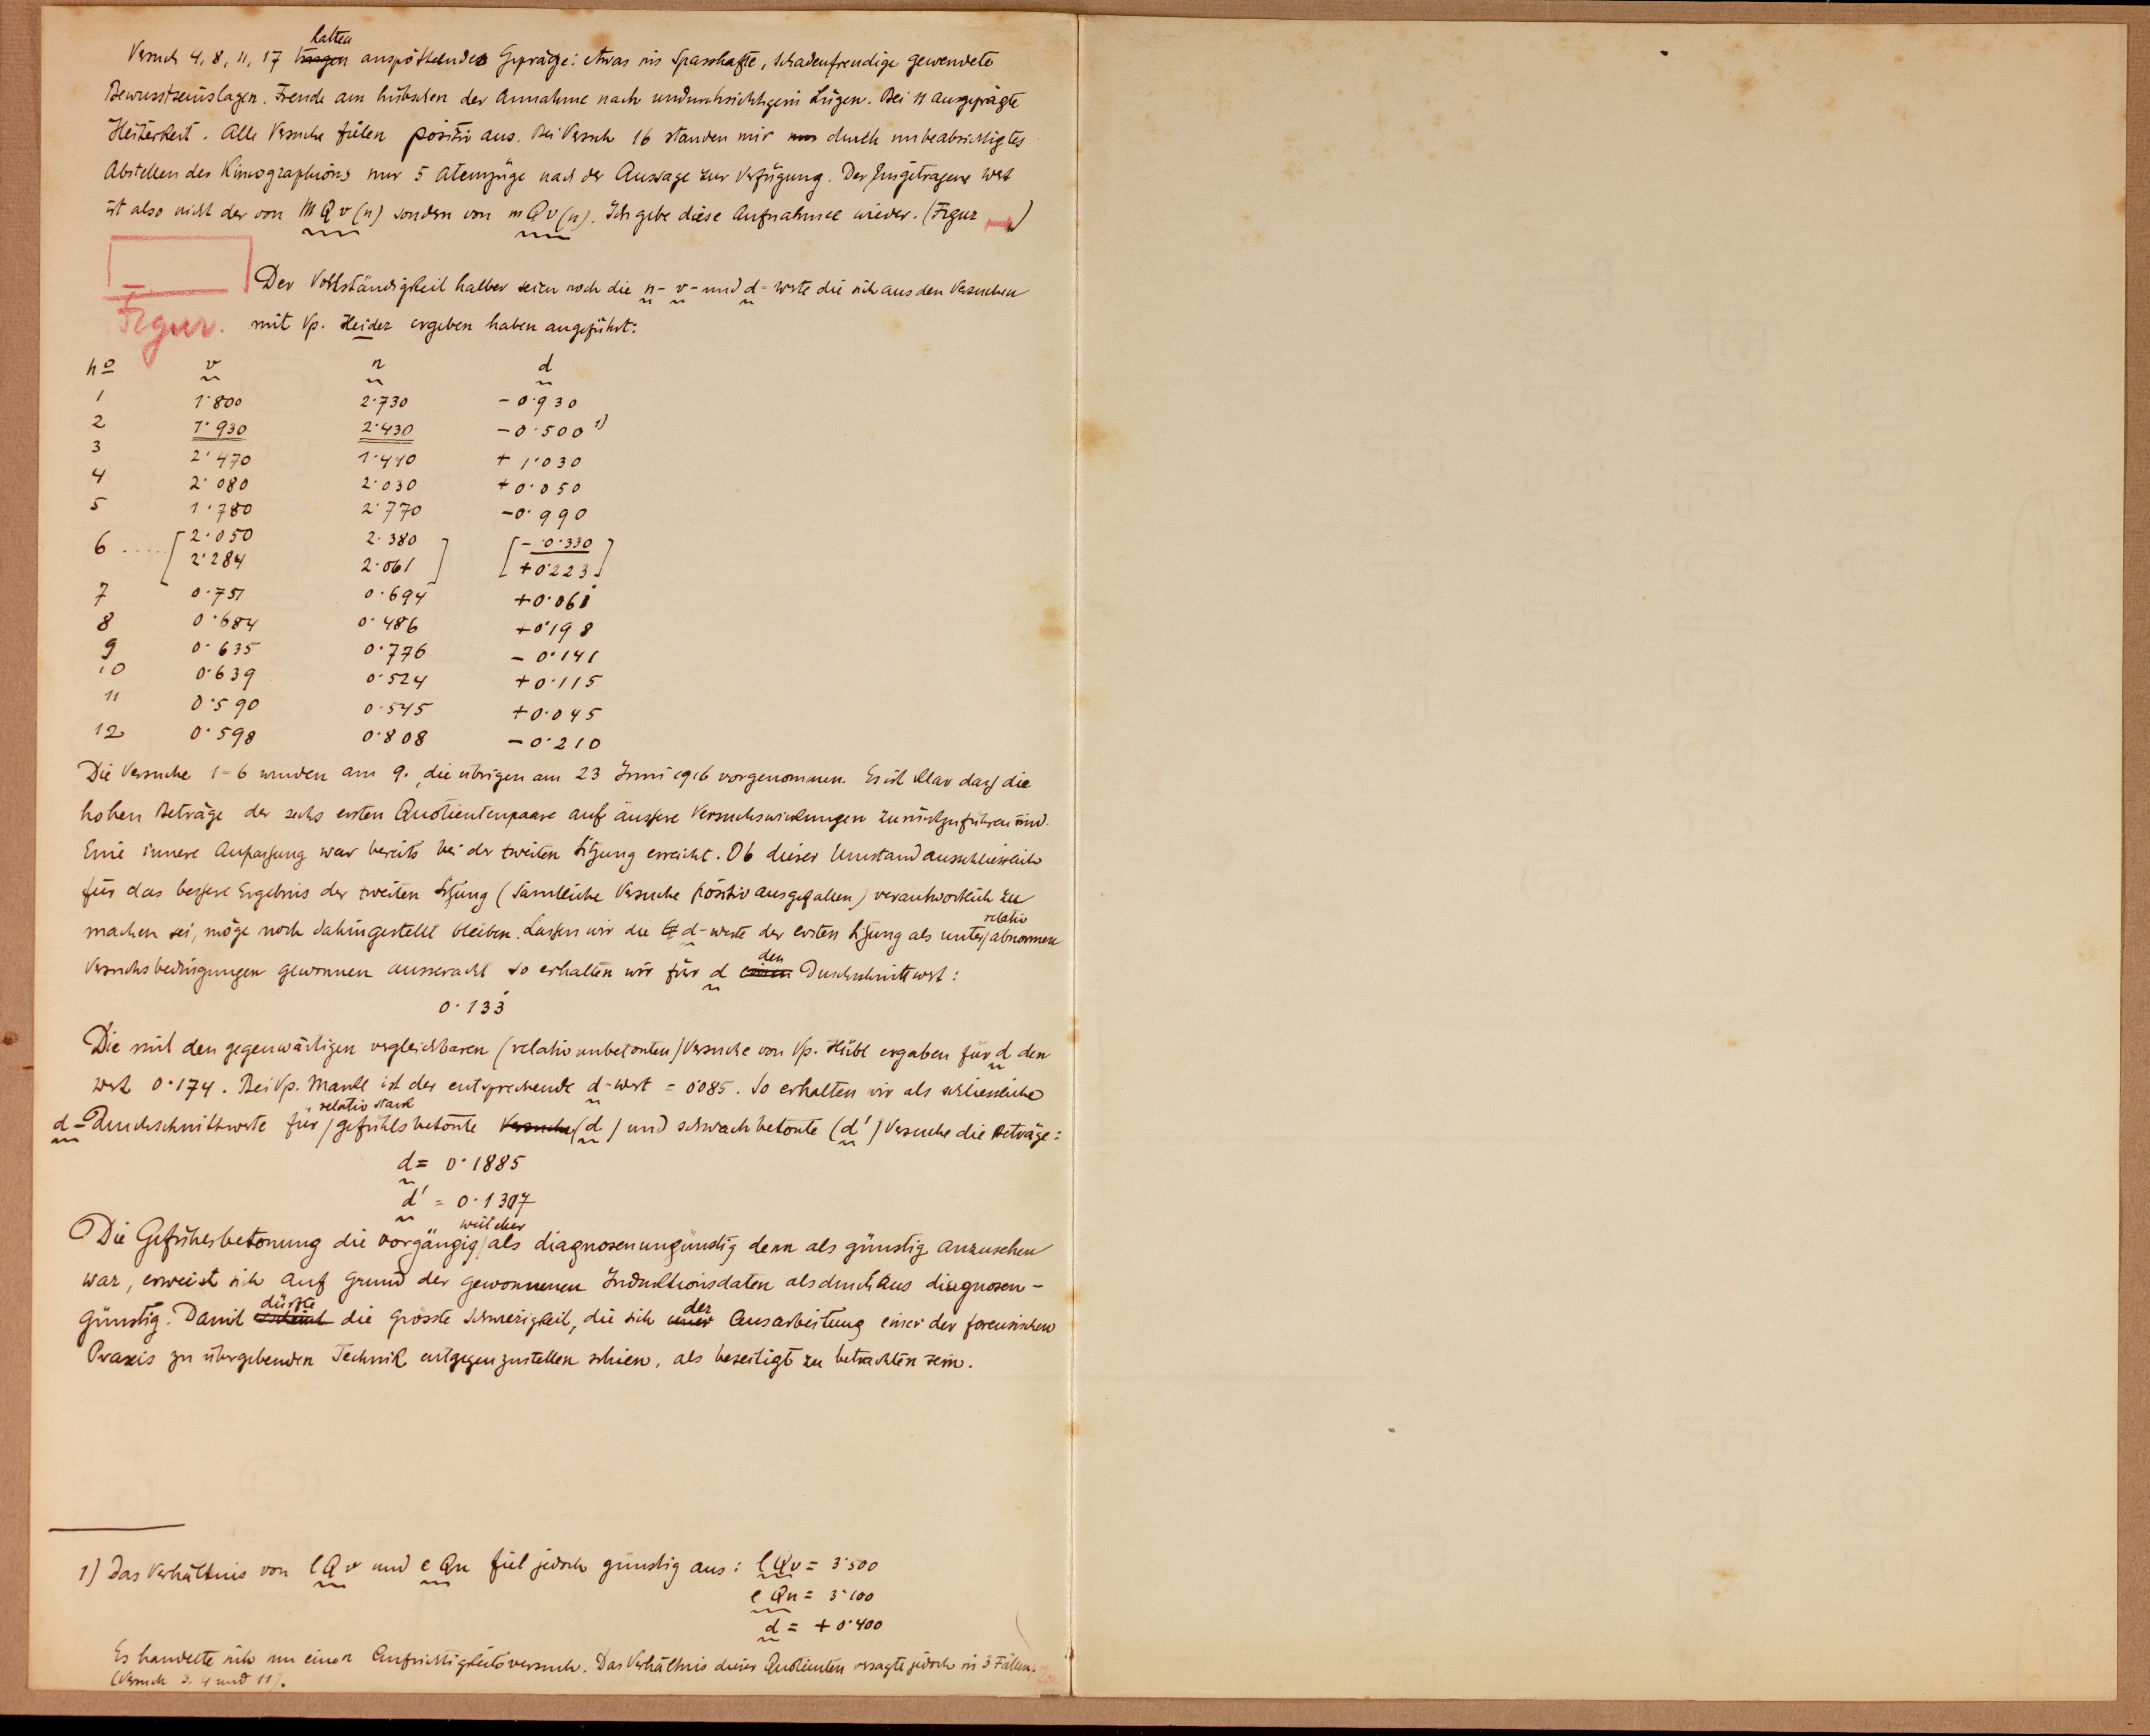 hatten
Versuch 4, 8, 11, 17 trugen anspöttelndes Gepräge: etwas ins Spasshafte, schadenfreudige gewendete
Bewusstseinslagen. Freude am hübschen der Annahme nach undurchsichtigem Lügen. Bei 11 ausgeprägte
Heiterkeit. Alle Versuche fielen positiv aus. Bei Versuch 16 standen mir nur durch unbeabsichtigtes
Abstellen des Kimographions nur 5 Atemzüge nach der Aussage zur Verfügung. Der eingetragene Wert
ist also nicht der von MQv(n) sondern von mQv(n). Ich gebe diese Aufnahme wieder. (Figur )
Der Vollständigkeit halber seien noch die n- v- und d- Werte die sich aus den Versuchen
Figur. mit Vp. Heider ergeben haben angeführt:
no v n d
1 1·800 2·730 - 0·930
2 1·930 2·430 - 0·500 1)
3 2·470 1·440 + 1·030
4 2·080 2·030 + 0·050
5 1·780 2·770 - 0·990
6 ..... [2·050 2·380 ] [- 0·330 ]
[2·284 2·061 ] [+ 0·223 ]
7 0·751 0·694 + 0·061
8 0·684 0·486 + 0·198
9 0·635 0·776 - 0·141
10 0·639 0·524 + 0·115
11 0·590 0·545 + 0·045
12 0·598 0·808 - 0·210
Die Versuche 1-6 wurden am 9., die übrigen am 23 Juni 1916 vorgenommen. Es ist klar dass die
hohen Beträge der sechs ersten Quotientenpaare auf äussere Versuchswirkungen zurückzuführen sind.
Eine innere Anpassung war bereits bei der zweiten Sitzung erreicht. Ob dieser Umstand ausschliesslich
für das bessere Ergebnis der zweiten Sitzung (sämtliche Versuche positiv ausgefallen) verantwortlich zu
relativ
machen sei, möge noch dahingestellt bleiben. Lassen wir die d-Werte der ersten Sitzung als unter/abnormen
den
Versuchsbedingungen gewonnen ausseracht so erhalten wir für d einen Durchschnittwert:
0·133
Die mit den gegenwärtigen vergleichbaren (relativ unbetonten) Versuche von Vp. Hübl ergaben für d den
Wert 0·174. Bei Vp. Mankl ist der entsprechende d-Wert = 0·085. So erhalten wir als schliessliche
relativ stark
d-Durchschnittwerte für/gefühlsbetonte Versuche (d) und schwach betonte (d') Versuche die Beträge:
d = 0·1885
d' = 0·1307
welcher
Die Gefühlsbetonung die vorgängig/als diagnosenungünstig denn als günstig anzusehen
war, erweist sich auf Grund der gewonnenen Induktionsdaten als durchaus diagnosen-
dürfte der
günstig. Damit scheint die grösste Schwierigkeit, die sich einer Ausarbeitung einer der forensischen
Praxis zu übergebenden Technik entgegenzustellen schien, als beseitigt zu betrachten sein.
1) Das Verhältnis von lQv und eQn fiel jedoch günstig aus: lQv = 3·500
eQn = 3·100
d = + 0·400
Es handelte sich um einen Aufrichtigkeitsversuch. Das Verhältnis dieser Quotienten versagte jedoch in 3 Fällen.
(Versuch 3. 4 und 11).